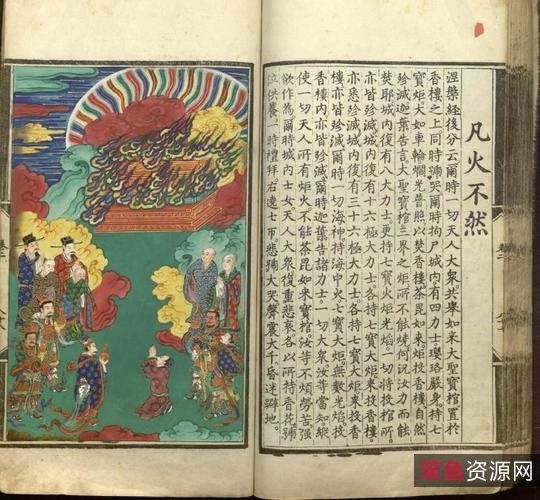 凡火不然
涅槃經後分云爾時一切天人大衆共舉如來大聖寶棺置於
香樓之上同時號哭爾時拘尸城內有四力士瓔珞嚴身持七
寶炬大如車輪燗光普照以焚香樓茶毘如來炬投香樓自然
殄滅迦葉告言大聖寶棺三界之炬所不能燒何況汝力而能
焚耶城內復有八大力士更持七寶火炬光焰一切將投棺所
亦皆殄滅城內復有十六極大力士各持七寶大炬來投香樓
亦悉殄滅城內復有三十六極大力士各持七寶大炬來投香
樓亦皆殄滅爾時一切海神持海中火七寶大炬無數光焰投
香樓內亦皆殄滅爾時迦葉告諸力士一切大衆汝等當知縱
使一切天人所有炬火不能茶毘如來寶棺汝等不須勞苦強
欲作為爾時城內士女天人大衆復重悲哀各以所持香花
位供養一時禮拜右遶七帀悲號大哭聲震大千昏迷躃地
笨鱼资源网